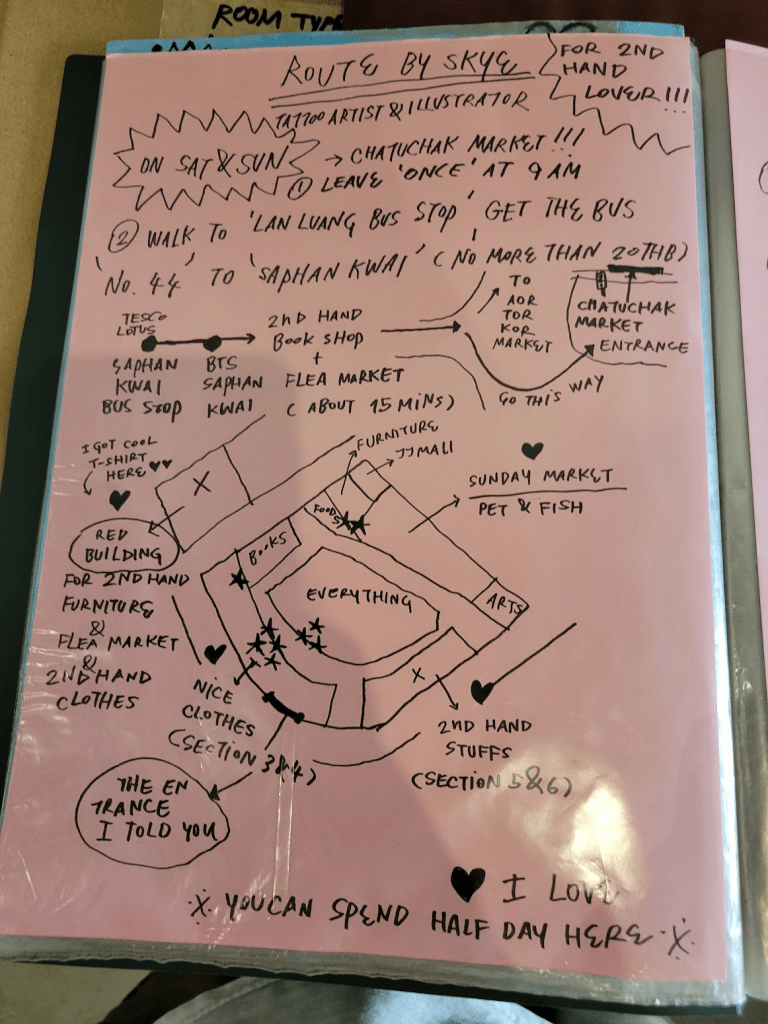 ROOM TYPE
ROUTE BY SKYE
TATTOO ARTIST & ILLUSTRATOR
FOR 2ND
HAND
LOVER!!!
ON SAT & SUN
→ CHATUCHAK MARKET!!!
① LEAVE 'ONCE' AT 9 AM
② WALK TO 'LAN LUANG BUS STOP' GET THE BUS
'NO. 44' TO 'SAPHAN KWAI' (NO MORE THAN 20THB)
TESCO
LOTUS
SAPHAN
KWAI
BUS STOP
BTS
SAPHAN
KWAI
2ND HAND
BOOK SHOP
+
FLEA MARKET
(ABOUT 15 MINS)
TO
AOR
TOR
KOR
MARKET
CHATUCHAK
MARKET
ENTRANCE
GO THIS WAY
I GOT COOL
T-SHIRT
HERE ♥♥
X
RED
BUILDING
FOR 2ND HAND
FURNITURE
&
FLEA MARKET
&
2ND HAND
CLOTHES
FURNITURE
JJ MALL
SUNDAY MARKET
PET & FISH
FOODS
BOOKS
EVERYTHING
ARTS
X
NICE
CLOTHES
(SECTION 3&4)
2ND HAND
STUFFS
(SECTION 5&6)
THE EN
TRANCE
I TOLD YOU
♥ I LOVE
※ YOU CAN SPEND HALF DAY HERE ※